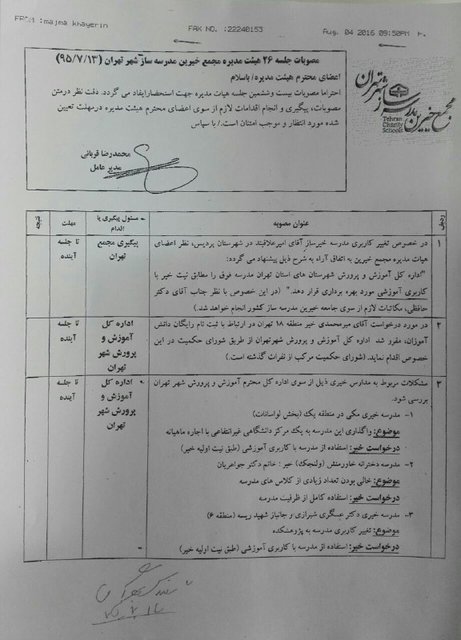 FROM :majma khayerin
FAX NO. :22240153
Aug. 04 2016 09:50PM
مجمع خیرین مدرسه ساز شهر تهران
Tehran
Charity
Schools
مصوبات جلسه ۲۶ هیئت مدیره مجمع خیرین مدرسه ساز شهر تهران (۹۵/۷/۱۳)
اعضای محترم هیئت مدیره/ باسلام
احتراما مصوبات بیست وششمین جلسه هیات مدیره جهت استحضارایفاد می گردد. دقت نظر درمتن
مصوبات، پیگیری و انجام اقدامات لازم از سوی اعضای محترم هیئت مدیره درمهلت تعیین
شده مورد انتظار و موجب امتنان است./ با سپاس
محمدرضا قربانی
مدیر عامل
ردیف
عنوان مصوبه
مسئول پیگیری یا اقدام
مهلت
نتیجه
۱
در خصوص تغییر کاربری مدرسه خیرساز آقای امیرعلافبند در شهرستان پردیس، نظر اعضای
هیات مدیره مجمع خیرین به اتفاق آراء به شرح ذیل پیشنهاد می گردد:
"اداره کل آموزش و پرورش شهرستان های استان تهران مدرسه فوق را مطابق نیت خیر با
کاربری آموزشی مورد بهره برداری قرار دهد." (در این خصوص با نظر جناب آقای دکتر
حافظی، مکاتبات لازم از سوی جامعه خیرین مدرسه ساز کشور انجام خواهد شد.)
پیگیری مجمع
تهران
تا جلسه
آینده
۲
در مورد درخواست آقای میرمحمدی خیر منطقه ۱۸ تهران در ارتباط با ثبت نام رایگان دانش
آموزان، مقرر شد اداره کل آموزش و پرورش شهرتهران از طریق شورای حکمیت در این
خصوص اقدام نماید. (شورای حکمیت مرکب از نفرات گذشته است.)
اداره کل
آموزش و
پرورش شهر
تهران
تا جلسه
آینده
۳
مشکلات مربوط به مدارس خیری ذیل از سوی اداره کل محترم آموزش و پرورش شهر تهران
بررسی شود.
۱- مدرسه خیری مکی در منطقه یک (بخش لواسانات)
موضوع: واگذاری این مدرسه به یک مرکز دانشگاهی غیرانتفاعی با اجاره ماهیانه
درخواست خیر: استفاده از مدرسه با کاربری آموزشی (طبق نیت اولیه خیر)
۲- مدرسه دخترانه خاورمنش (ولنجک) خیر : خانم دکتر جواهریان
موضوع: خالی بودن تعداد زیادی از کلاس های مدرسه
درخواست خیر: استفاده کامل از ظرفیت مدرسه
۳- مدرسه خیری دکتر عسگری شیرازی و جانباز شهید ریسه (منطقه ۶)
موضوع: تغییر کاربری مدرسه به پژوهشکده
درخواست خیر: استفاده از مدرسه با کاربری آموزشی (طبق نیت اولیه خیر)
اداره کل
آموزش و
پرورش شهر
تهران
تا جلسه
آینده